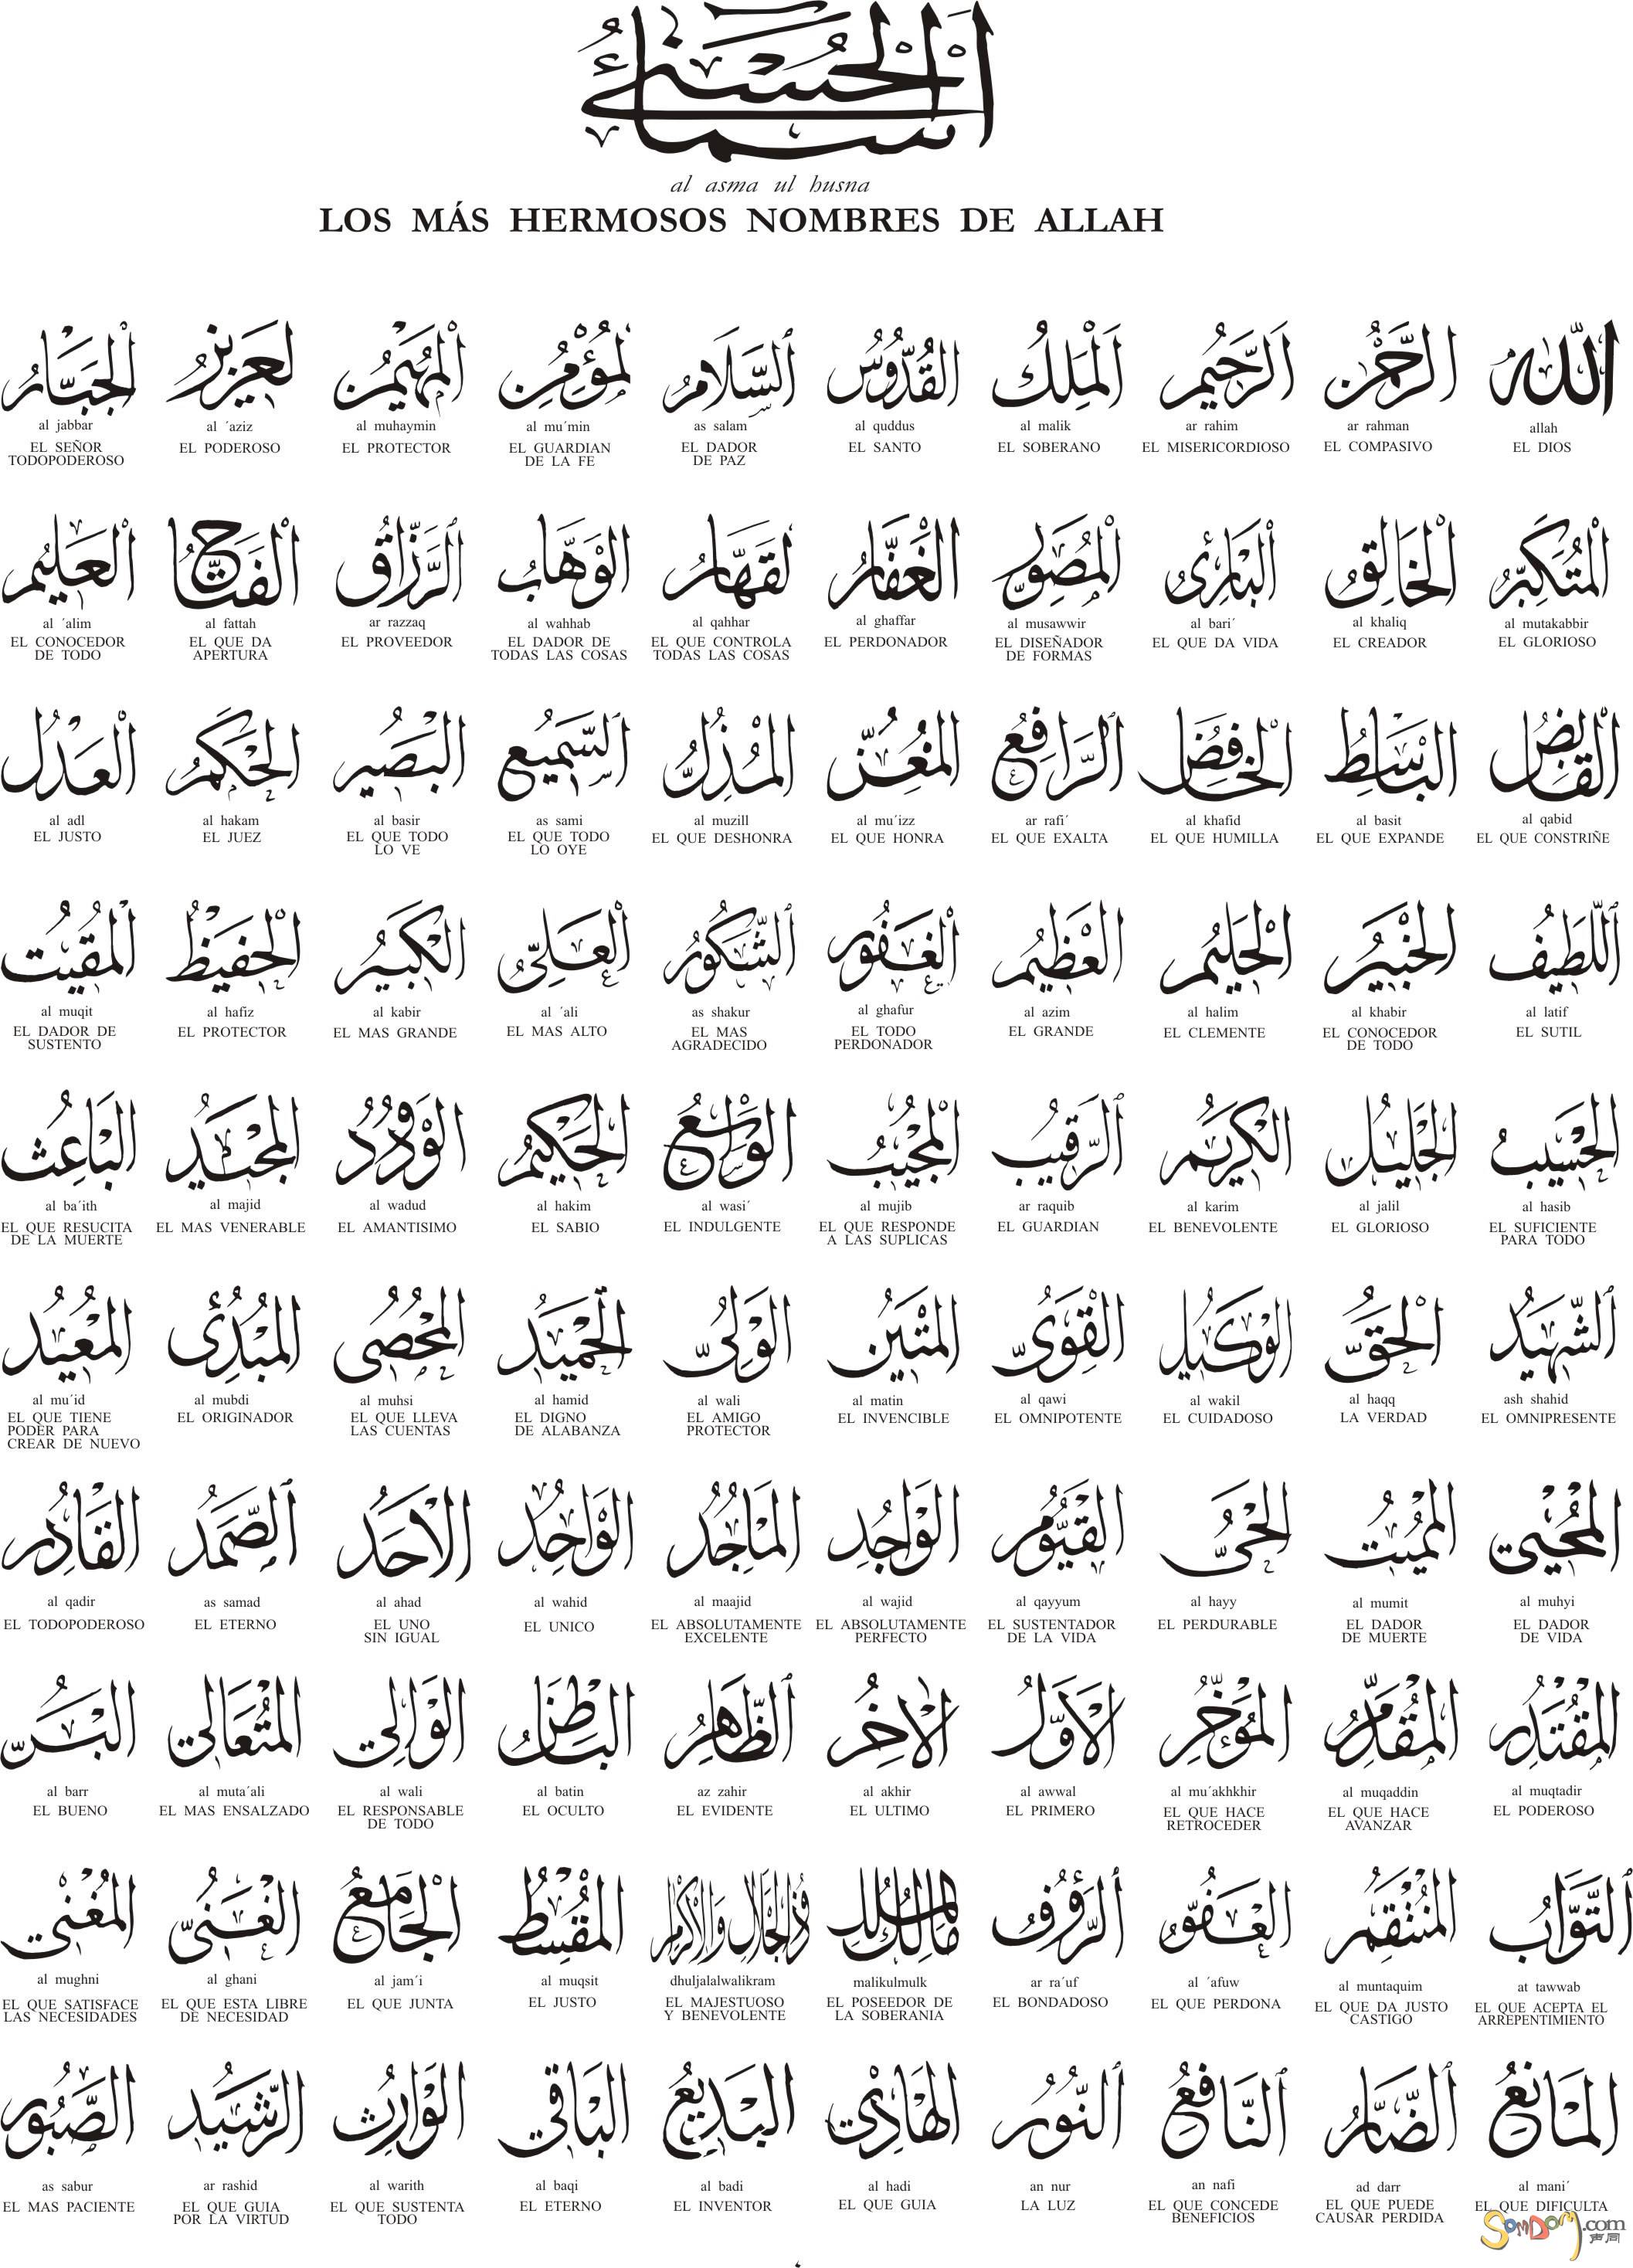 اسماء الحسنى
al asma ul husna
LOS MÁS HERMOSOS NOMBRES DE ALLAH
الله
allah
EL DIOS
الرحمن
ar rahman
EL COMPASIVO
الرحيم
ar rahim
EL MISERICORDIOSO
الملك
al malik
EL SOBERANO
القدوس
al quddus
EL SANTO
السلام
as salam
EL DADOR
DE PAZ
لمؤمن
al mu´min
EL GUARDIAN
DE LA FE
المهيمن
al muhaymin
EL PROTECTOR
لعزيز
al ´aziz
EL PODEROSO
الجبار
al jabbar
EL SEÑOR
TODOPODEROSO
المتكبر
al mutakabbir
EL GLORIOSO
الخالق
al khaliq
EL CREADOR
البارئ
al bari´
EL QUE DA VIDA
المصور
al musawwir
EL DISEÑADOR
DE FORMAS
الغفار
al ghaffar
EL PERDONADOR
لقهار
al qahhar
EL QUE CONTROLA
TODAS LAS COSAS
الوهاب
al wahhab
EL DADOR DE
TODAS LAS COSAS
الرزاق
ar razzaq
EL PROVEEDOR
الفتاح
al fattah
EL QUE DA
APERTURA
العليم
al ´alim
EL CONOCEDOR
DE TODO
القابض
al qabid
EL QUE CONSTRIÑE
الباسط
al basit
EL QUE EXPANDE
الخافض
al khafid
EL QUE HUMILLA
الرافع
ar rafi´
EL QUE EXALTA
المعز
al mu´izz
EL QUE HONRA
المذل
al muzill
EL QUE DESHONRA
السميع
as sami
EL QUE TODO
LO OYE
البصير
al basir
EL QUE TODO
LO VE
الحكم
al hakam
EL JUEZ
العدل
al adl
EL JUSTO
اللطيف
al latif
EL SUTIL
الخبير
al khabir
EL CONOCEDOR
DE TODO
الحليم
al halim
EL CLEMENTE
العظيم
al azim
EL GRANDE
الغفور
al ghafur
EL TODO
PERDONADOR
الشكور
as shakur
EL MAS
AGRADECIDO
العلي
al ´ali
EL MAS ALTO
الكبير
al kabir
EL MAS GRANDE
الحفيظ
al hafiz
EL PROTECTOR
المقيت
al muqit
EL DADOR DE
SUSTENTO
الحسيب
al hasib
EL SUFICIENTE
PARA TODO
الجليل
al jalil
EL GLORIOSO
الكريم
al karim
EL BENEVOLENTE
الرقيب
ar raquib
EL GUARDIAN
المجيب
al mujib
EL QUE RESPONDE
A LAS SUPLICAS
الواسع
al wasi´
EL INDULGENTE
الحكيم
al hakim
EL SABIO
الودود
al wadud
EL AMANTISIMO
المجيد
al majid
EL MAS VENERABLE
الباعث
al ba´ith
EL QUE RESUCITA
DE LA MUERTE
الشهيد
ash shahid
EL OMNIPRESENTE
الحق
al haqq
LA VERDAD
الوكيل
al wakil
EL CUIDADOSO
القوي
al qawi
EL OMNIPOTENTE
المتين
al matin
EL INVENCIBLE
الولي
al wali
EL AMIGO
PROTECTOR
الحميد
al hamid
EL DIGNO
DE ALABANZA
المحصى
al muhsi
EL QUE LLEVA
LAS CUENTAS
المبدئ
al mubdi
EL ORIGINADOR
المعيد
al mu´id
EL QUE TIENE
PODER PARA
CREAR DE NUEVO
المحيي
al muhyi
EL DADOR
DE VIDA
المميت
al mumit
EL DADOR
DE MUERTE
الحي
al hayy
EL PERDURABLE
القيوم
al qayyum
EL SUSTENTADOR
DE LA VIDA
الواجد
al wajid
EL ABSOLUTAMENTE
PERFECTO
الماجد
al maajid
EL ABSOLUTAMENTE
EXCELENTE
الواحد
al wahid
EL UNICO
الاحد
al ahad
EL UNO
SIN IGUAL
الصمد
as samad
EL ETERNO
القادر
al qadir
EL TODOPODEROSO
المقتدر
al muqtadir
EL PODEROSO
المقدم
al muqaddin
EL QUE HACE
AVANZAR
المؤخر
al mu´akhkhir
EL QUE HACE
RETROCEDER
الاول
al awwal
EL PRIMERO
الاخر
al akhir
EL ULTIMO
الظاهر
az zahir
EL EVIDENTE
الباطن
al batin
EL OCULTO
الوالي
al wali
EL RESPONSABLE
DE TODO
المتعالي
al muta´ali
EL MAS ENSALZADO
البر
al barr
EL BUENO
التواب
at tawwab
EL QUE ACEPTA EL
ARREPENTIMIENTO
المنتقم
al muntaquim
EL QUE DA JUSTO
CASTIGO
العفو
al ´afuw
EL QUE PERDONA
الرؤف
ar ra´uf
EL BONDADOSO
مالك الملك
malikulmulk
EL POSEEDOR DE
LA SOBERANIA
ذو الجلال والاكرام
dhuljalalwalikram
EL MAJESTUOSO
Y BENEVOLENTE
المقسط
al muqsit
EL JUSTO
الجامع
al jam´i
EL QUE JUNTA
الغني
al ghani
EL QUE ESTA LIBRE
DE NECESIDAD
المغني
al mughni
EL QUE SATISFACE
LAS NECESIDADES
المانع
al mani´
EL QUE DIFICULTA
الضار
ad darr
EL QUE PUEDE
CAUSAR PERDIDA
النافع
an nafi
EL QUE CONCEDE
BENEFICIOS
النور
an nur
LA LUZ
الهادي
al hadi
EL QUE GUIA
البديع
al badi
EL INVENTOR
الباقي
al baqi
EL ETERNO
الوارث
al warith
EL QUE SUSTENTA
TODO
الرشيد
ar rashid
EL QUE GUIA
POR LA VIRTUD
الصبور
as sabur
EL MAS PACIENTE
SOMDOM.com
声同